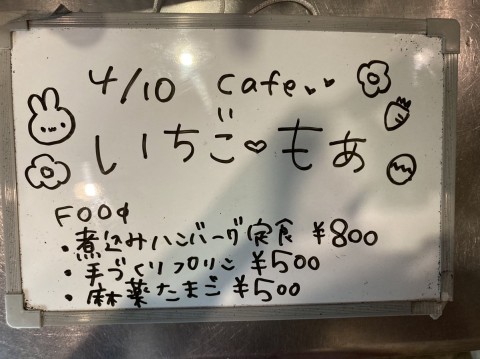 4/10 cafe
いちご♡もあ
FOOd
・煮込みハンバーグ定食 ¥800
・手づくりプリン ¥500
・麻薬たまご ¥500